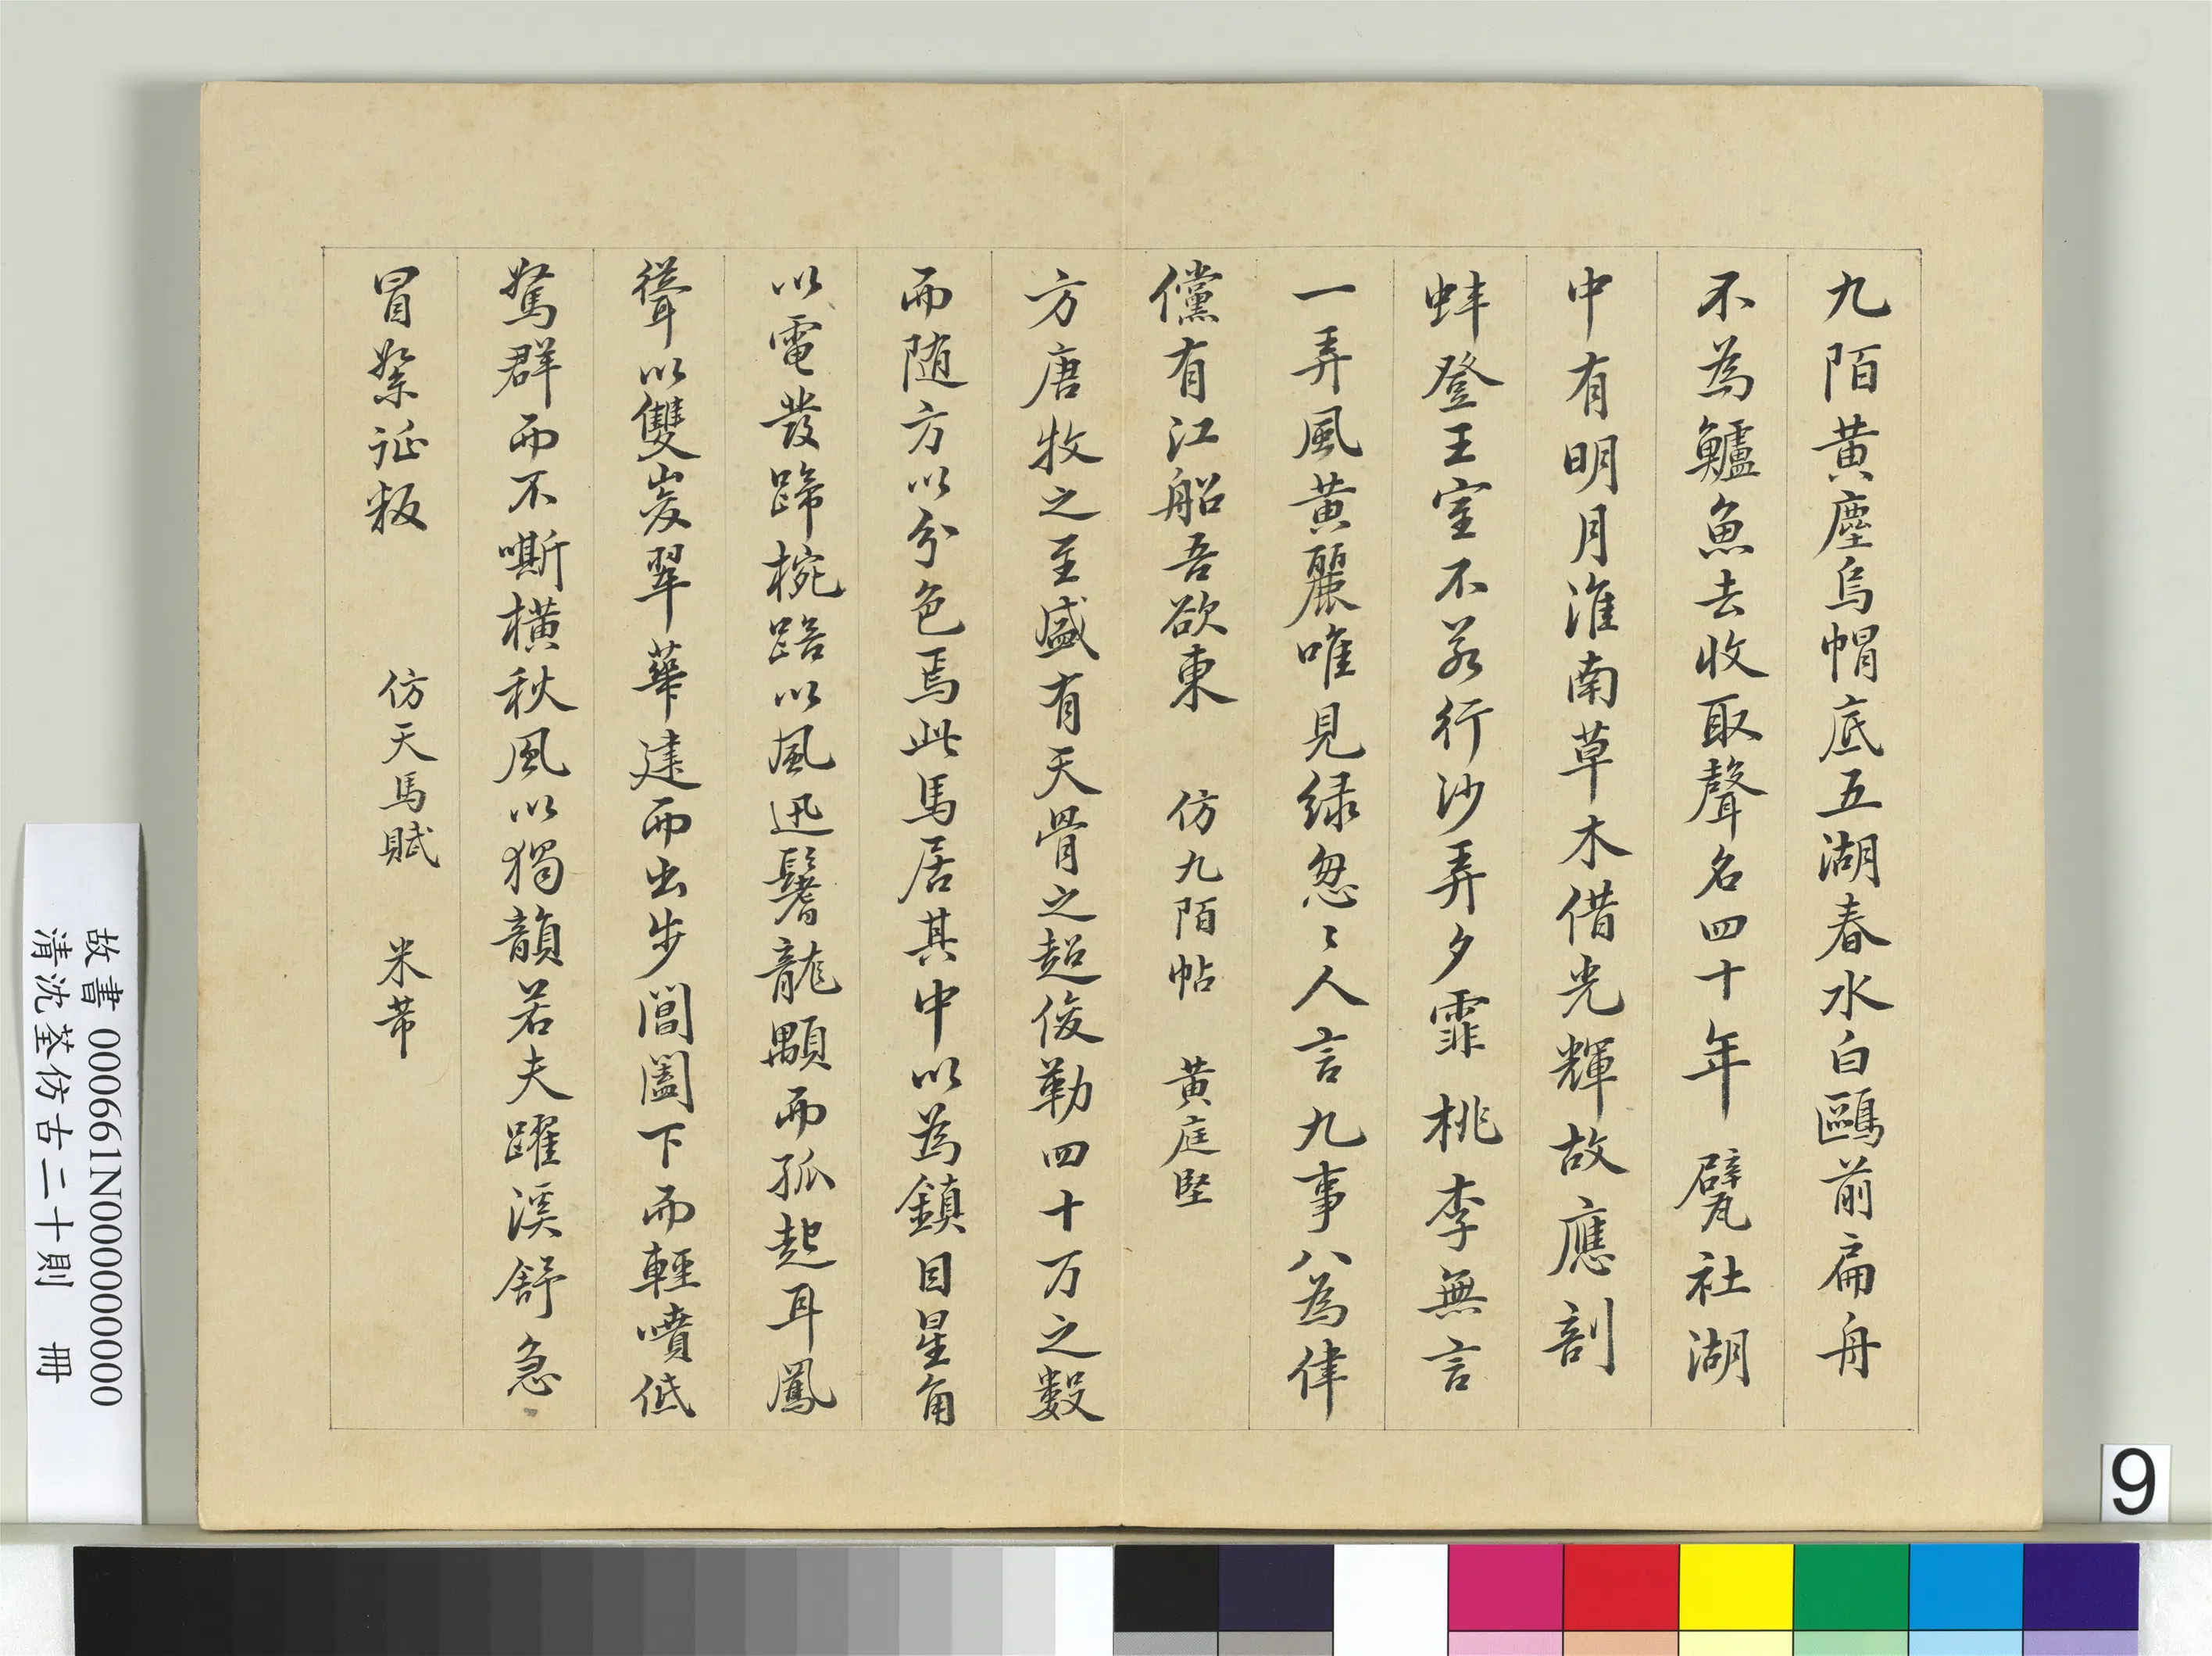 九陌黃塵烏帽底五湖春水白鷗前扁舟
不為鱸魚去收取聲名四十年甓社湖
中有明月淮南草木借光輝故應剖
蚌登王室不若行沙弄夕霏桃李無言
一弄風黃麗唯見綠怱〻人言九事八為律
儻有江船吾欲東 仿九陌帖 黃庭堅
方唐牧之至盛有天骨之超俊勒四十万之數
而随方以分色焉此馬居其中以為鎮目星角
以電發蹄椀踣以風迅鬐龍顒而孤起耳鳳
聳以雙峯翠華建而出步閶闔下而輕噴低
駑群而不嘶橫秋風以獨韻若夫躍溪舒急
冒絮征叛 仿天馬賦 米芾
故書 000661N000000000
清沈荃仿古二十則 冊
9